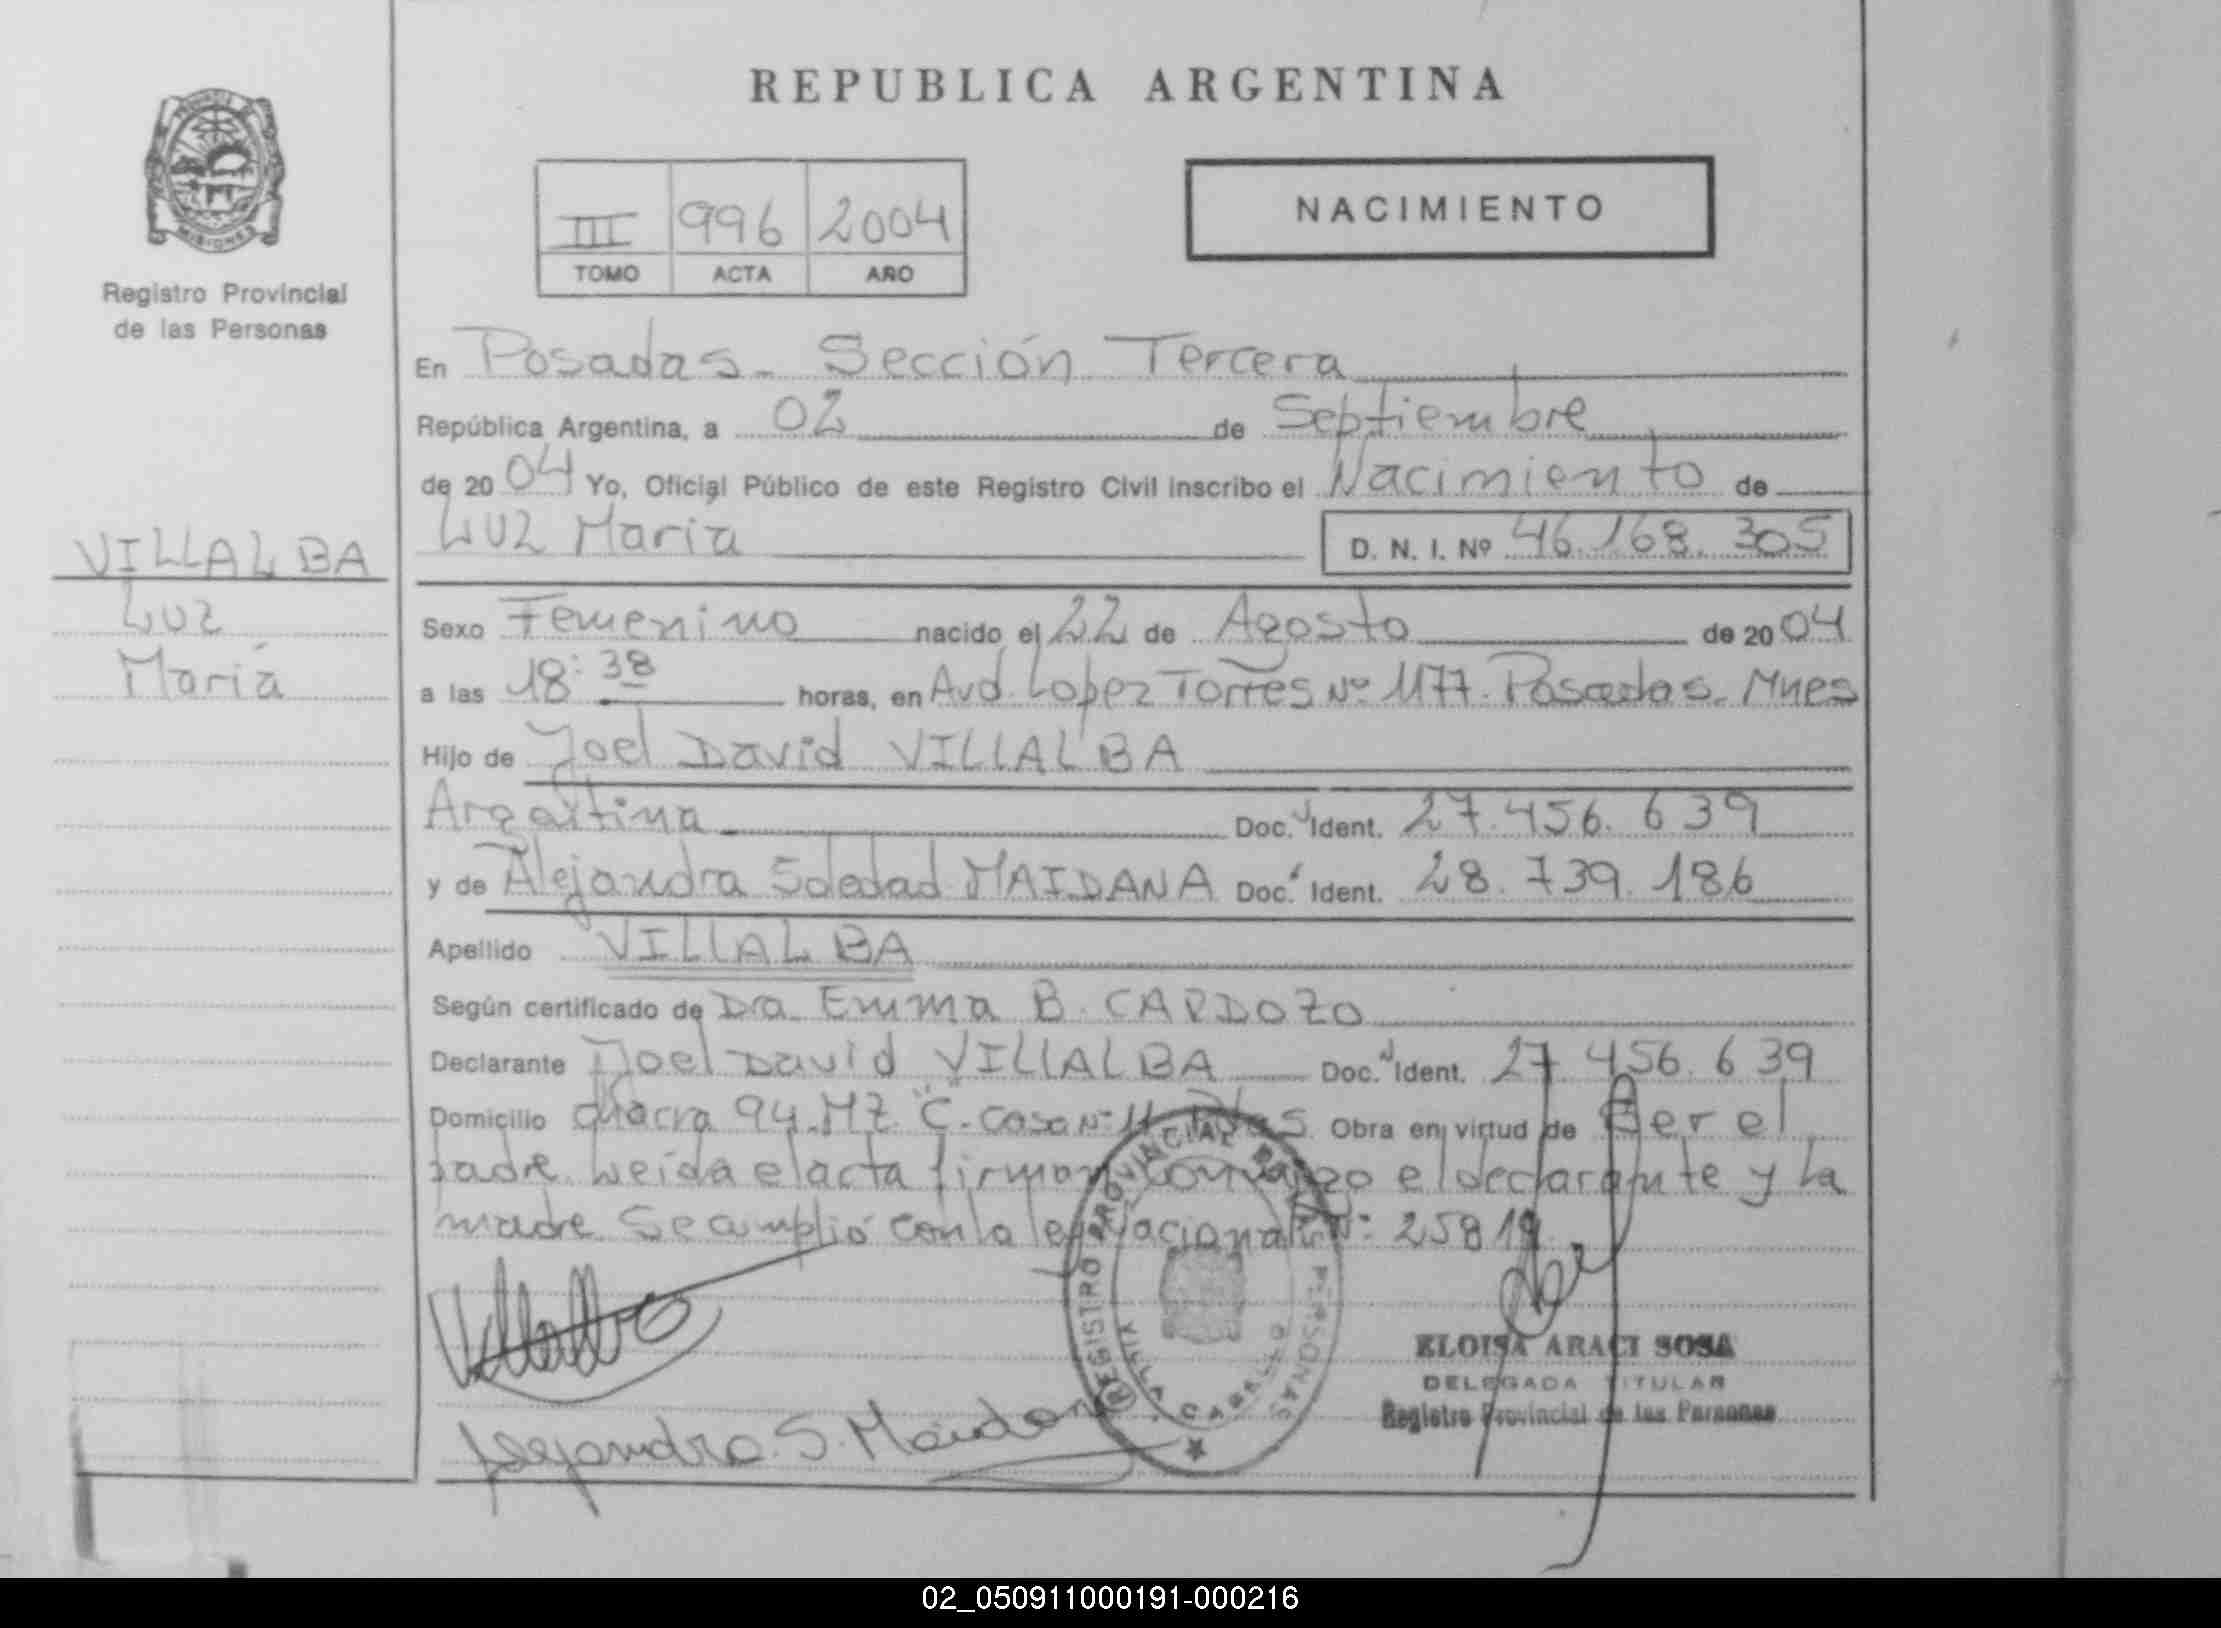 REPUBLICA ARGENTINA
MISIONES
Registro Provincial
de las Personas
III 996 2004
TOMO ACTA AÑO
NACIMIENTO
VILLALBA
Luz
María
En Posadas - Sección Tercera
República Argentina, a 02 de Septiembre
de 2004 Yo, Oficial Público de este Registro Civil inscribo el Nacimiento de
Luz Maria D. N. I. Nº 46.168.305
Sexo Femenino nacido el 22 de Agosto de 2004
a las 18:38 horas, en Avd. Lopez Torres Nº 1177. Posadas. Mnes
Hijo de Joel David VILLALBA
Argentina Doc. Ident. 27.456.639
y de Alejandra Soledad MAIDANA Doc. Ident. 28.739.186
Apellido VILLALBA
Según certificado de Dra. Emma B. CARDOZO
Declarante Joel David VILLALBA Doc. Ident. 27.456.639
Domicilio chacra 94. MZ. "C". Casa Nº 11. Pdas Obra en virtud de Ser el
padre. Leida el acta firman conmigo el declarante y la
madre. Se cumplió con la ley Nacional Nº: 25819
REGISTRO PROVINCIAL DE LAS PERSONAS
VILLA CABELLO
Alejandra. S. Maidana
ELOISA ARACI SOSA
DELEGADA TITULAR
Registro Provincial de las Personas
02_050911000191-000216